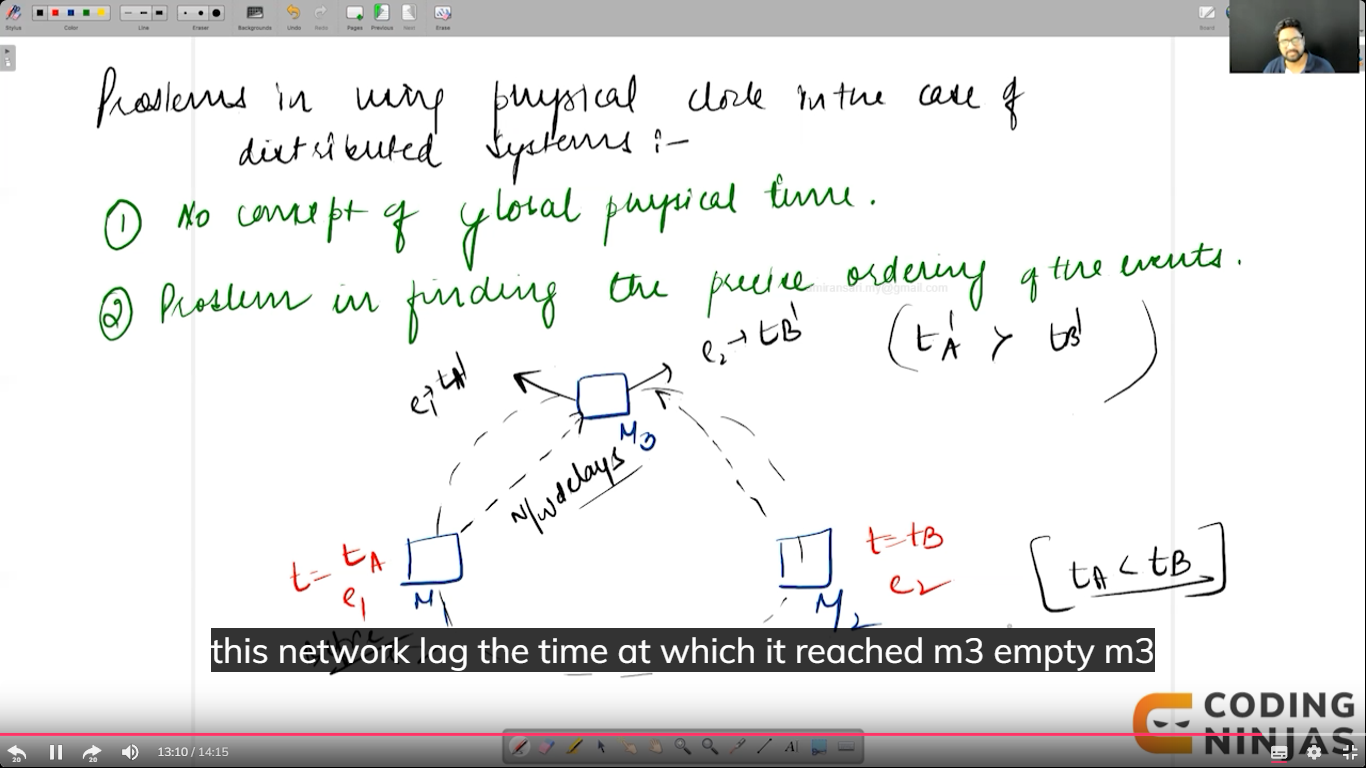 Stylus Color Line Eraser Backgrounds Undo Redo Pages Previous Next Erase Board
Problems in using physical clock in the case of
distributed systems :-
① No concept of global physical time.
② Problem in finding the precise ordering of the events.
miransari.my@gmail.com
e1→tA'
e2→tB'
(tA' > tB')
M3
N/w delays
t=tA
e1
M
t=tB
e2
M2
[tA < tB]
this network lag the time at which it reached m3 empty m3
CODING
NINJAS
20 20 13:10 / 14:15